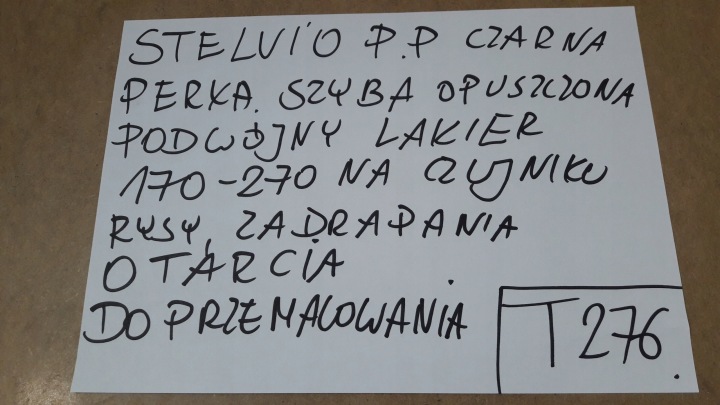 STELVIO P.P CZARNA
PERKA. SZYBA OPUSZCZONA
PODWÓJNY LAKIER
170-270 NA CZUJNIKU
RYSY, ZADRAPANIA
OTARCIA.
DO PRZEMALOWANIA
T276.